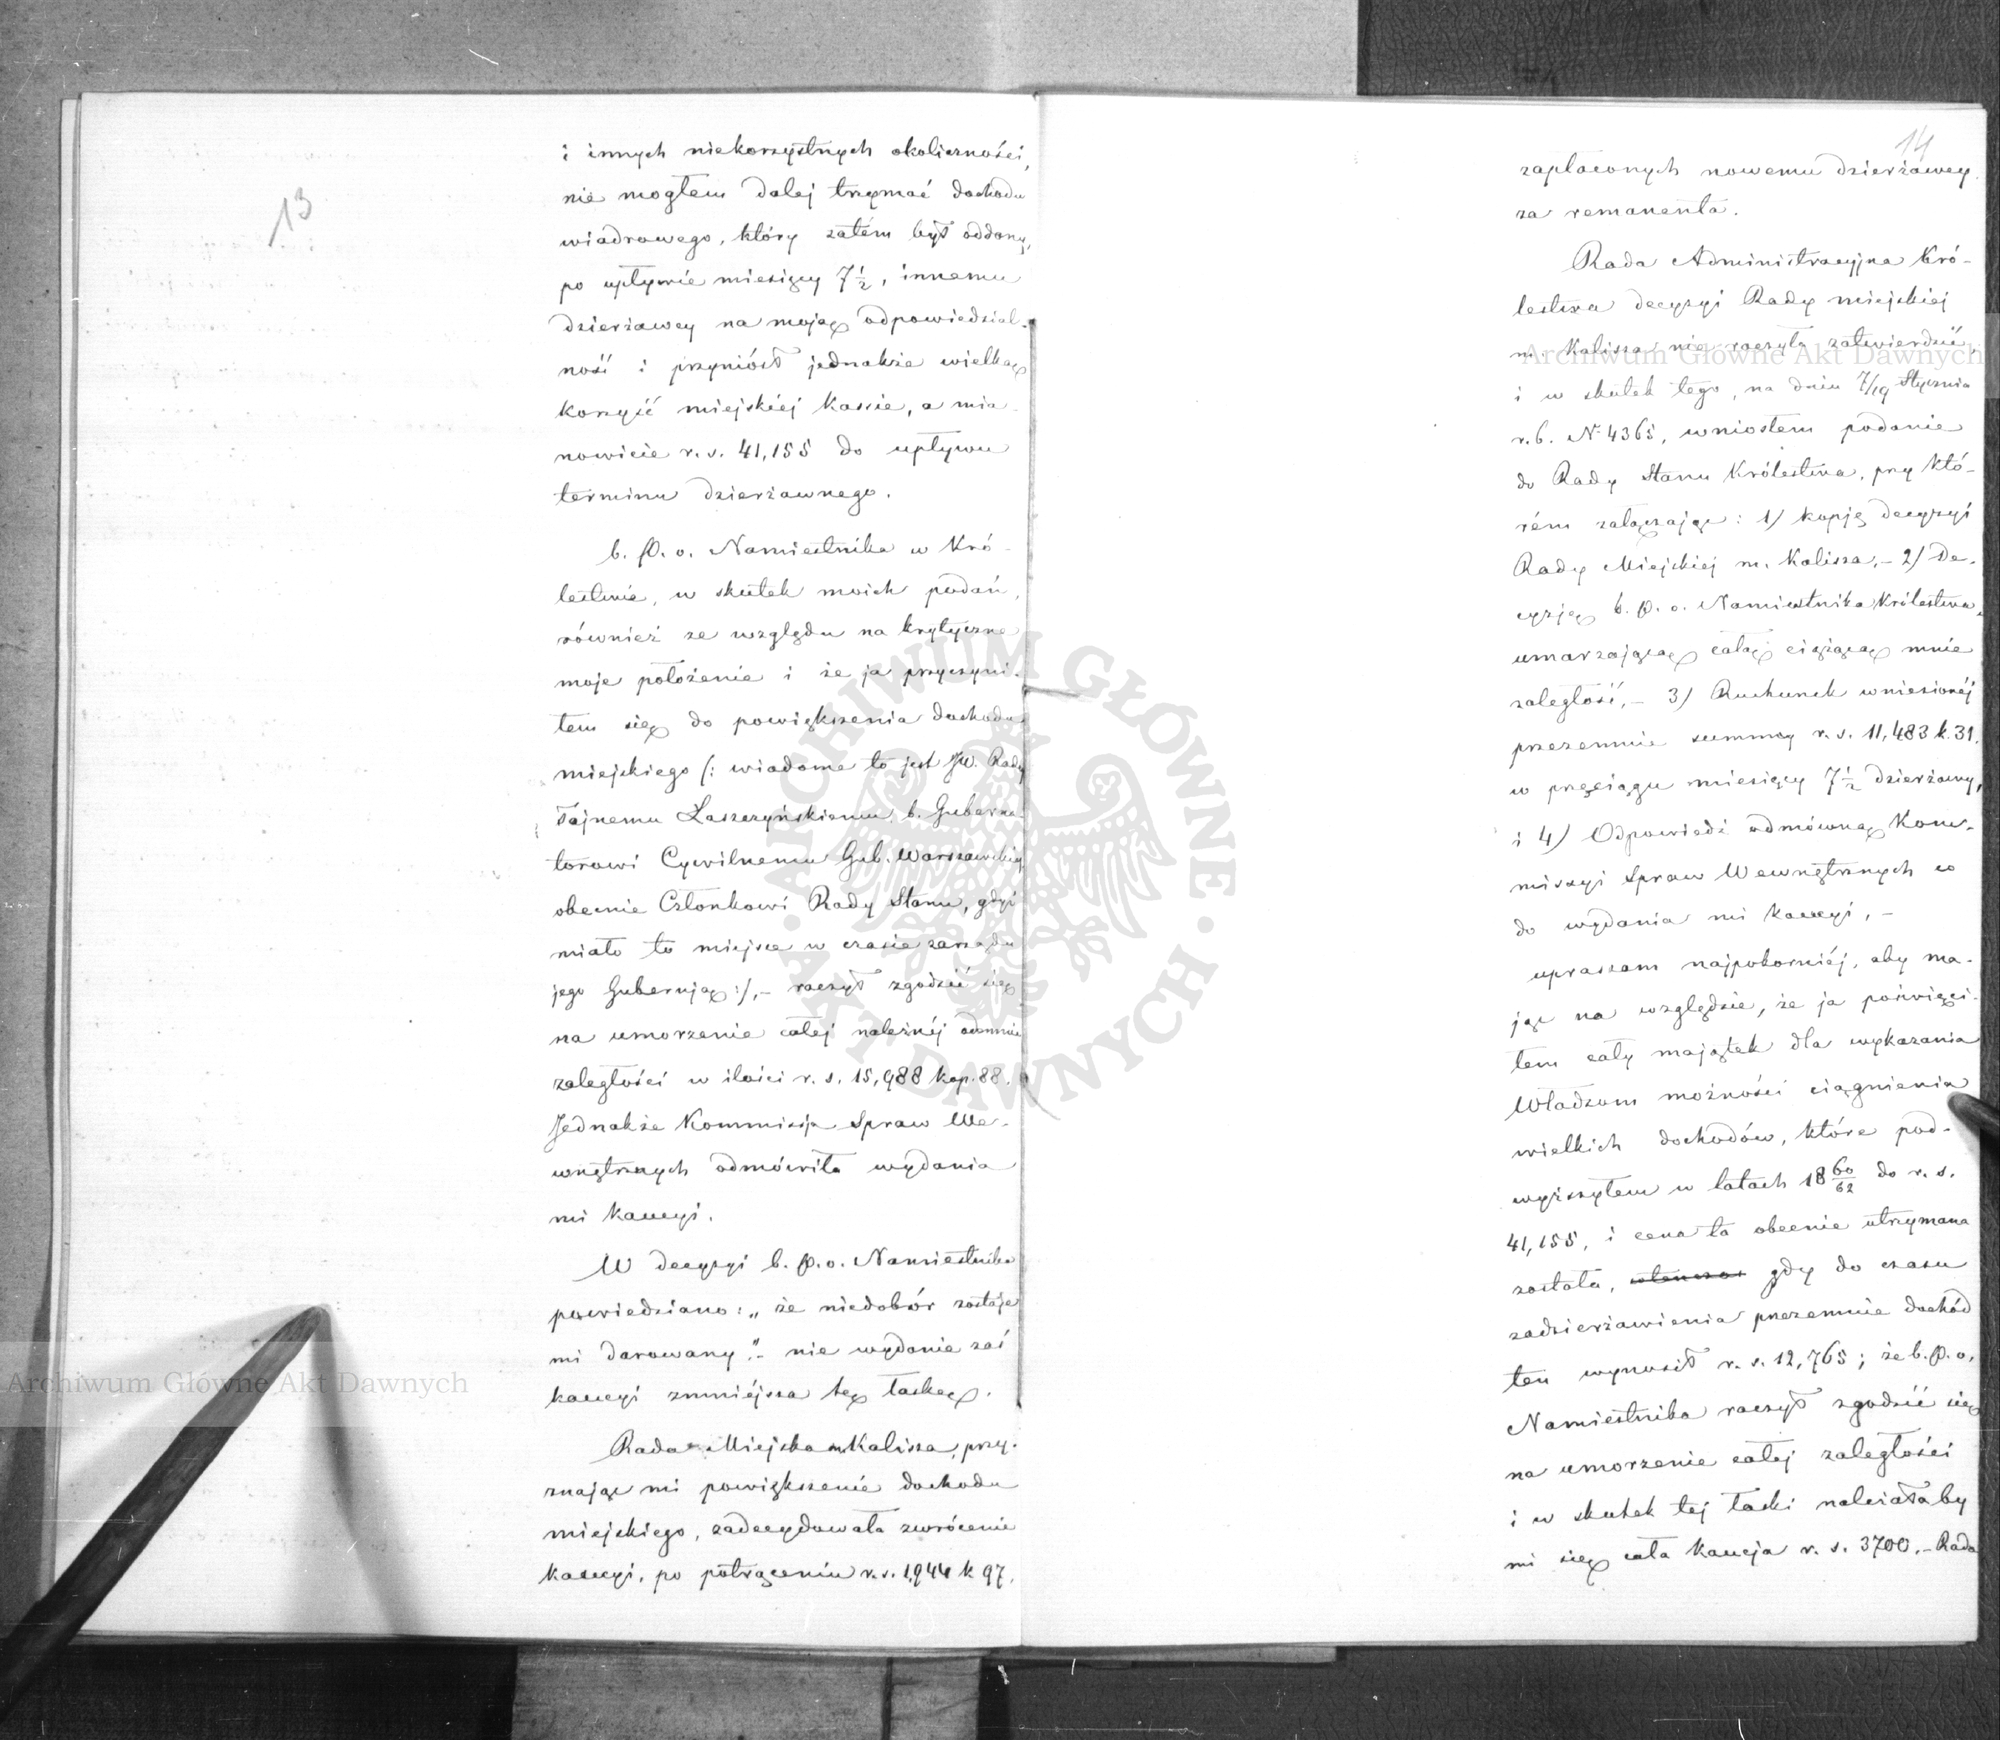 13
i innych niekorzystnych okoliczności,
nie mogłem dalej trzymać dochodu
wiadrowego, który zatém był oddany,
po upływie miesięcy 7½, innemu
dzierżawcy na moję odpowiedzial-
ność i przyniósł jednakże wielką
korzyść miejskiéj kassie, a mia-
nowicie r. s. 41,155 do upływu
terminu dzierżawnego.
b. p. o. Namiestnika w Kró-
lestwie, w skutek moich podań,
również ze względu na krytyczne
moje położenie i że ja przyczyni-
łem się do powiększenia dochodu
miejskiego (: wiadome to jest JW. Radcy
Tajnemu Łaszczyńskiemu, b. Guberna-
torowi Cywilnemu Gub. Warszawskiej
obecnie Członkowi Rady Stanu, gdyż
miało to miejsce w czasie zarządu
jego Gubernją :), – raczył zgodzić się
na umorzenie całej należnéj odemnie
zaległości w ilości r. s. 15,988 kop. 88.
Jednakże Kommissja Spraw We-
wnętrznych odmówiła wydania
mi kaucyi.
W decyzyi b. p. o. Namiestnika
powiedziano: „że niedobór zostaje
mi darowany", – nie wydanie zaś
kaucyi zmniéjsza tę łaskę.
Rada Miejska m. Kalisza, przy-
znając mi powiększenie dochodu
miejskiego, zadecydowała zwrócenie
kaucyi, po potrąceniu r. s. 1,944 k 97.
14
zapłaconych nowemu dzierżawcy
za remanenta.
Rada Administracyjna Kró-
lestwa decyzyi Rady miejskiej
m. Kalisza nie raczyła zatwierdzić,
i w skutek tego, na dniu 7/19 Stycznia
r. b. N. 4365, wniosłem podanie
do Rady Stanu Królestwa, przy któ-
rém załączając: 1) kopję decyzyi
Rady Miejskiej m. Kalisza, – 2) De-
cyzję b. p. o. Namiestnika Królestwa,
umarzającą całą ciążącą mnie
zaległość, – 3) Rachunek wniesionéj
przezemnie summy r. s. 11,483 k. 31.
w przeciągu miesięcy 7½ dzierżawy,
i 4) Odpowiedź odmówną Kom-
missyi Spraw Wewnętrznych co
do wydania mi kaucyi, –
upraszam najpokorniéj, aby ma-
jąc na względzie, że ja poświęci-
łem cały majątek dla wykazania
Władzom możności ciągnienia
wielkich dochodów, które pod-
wyższyłem w latach 18 60/62 do r. s.
41,155, i cena ta obecnie utrzymana
została, gdy do czasu
zadzierżawienia przezemnie dochód
ten wynosił r. s. 12,765; że b. p. o.
Namiestnika raczył zgodzić się
na umorzenie całej zaległości
i w skutek tej łaski należałaby
mi się cała kaucja r. s. 3700, – Rada
Archiwum Główne Akt Dawnych
Archiwum Główne Akt Dawnych
ARCHIWUM GŁÓWNE · AKT DAWNYCH ·